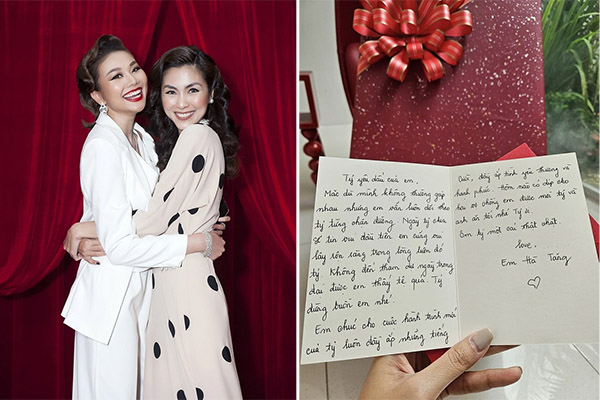 Tỷ yêu dấu của em,
Mặc dù mình không thường gặp
nhau nhưng em vẫn luôn dõi theo
tỷ từng chặn đường. Ngày tỷ chia
sẻ tin vui đầu tiên em cũng vui
lây rộn ràng trong lòng luôn đó
tỷ. Không đến tham dự ngày trọng
đại được em thấy tệ quá. Tỷ
đừng buồn em nhé.
Em chúc cho cuộc hành trình mới
của tỷ luôn đầy ắp những tiếng
Cười, đầy ắp tình yêu thương và
hạnh phúc. Hôm nào có dịp cho
vợ chồng em được mời tỷ và
anh ăn tối nhé Tỷ
tỷ một cái thật chặt.
love.
Em Hà Tăng